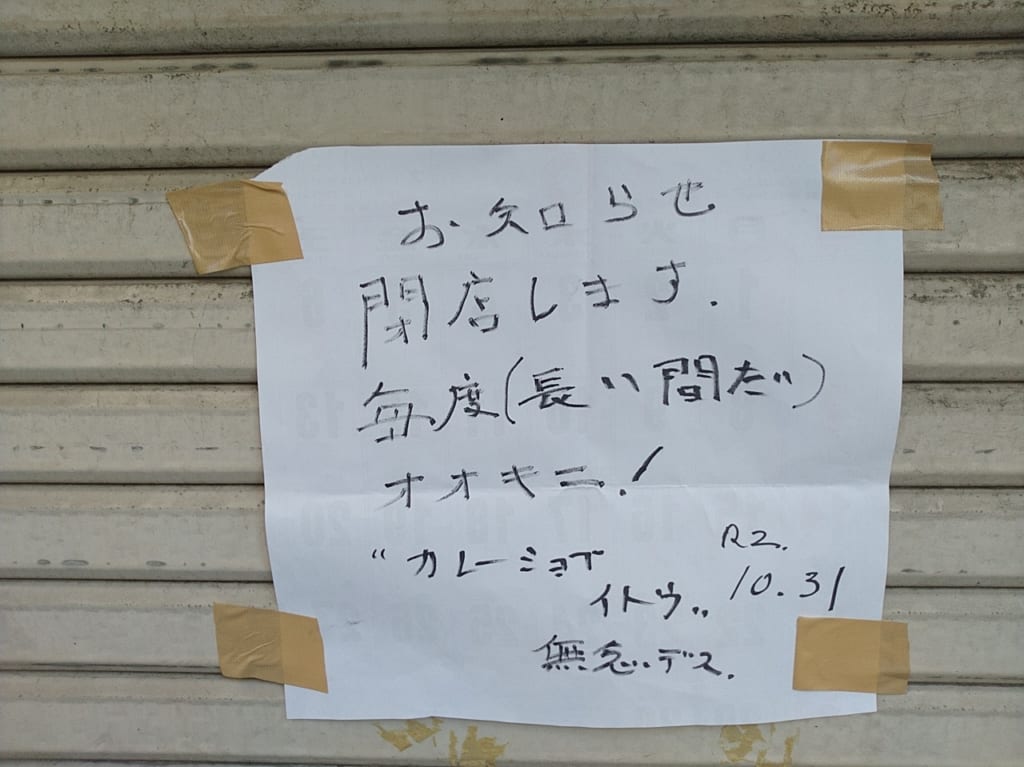 お知らせ
閉店します.
毎度(長い間だ)
オオキニ!
"カレーショプ
イトウ"
R2.
10.31
無念デス.